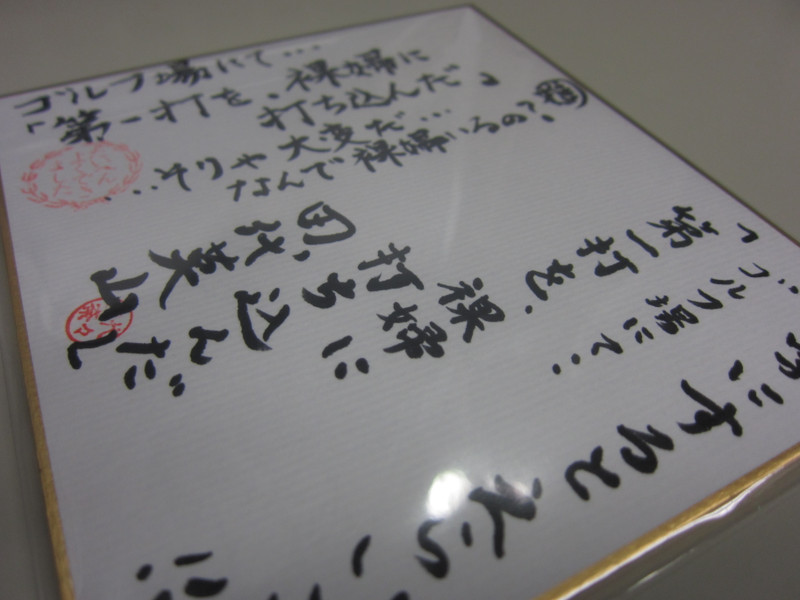 ゴルフ場にて…
「第一打を、裸婦に
打ち込んだ」
…そりゃ大変だ…
なんで裸婦いるの?
にするとえらい
「ゴルフ場にて…
第一打を、裸婦に
打ち込んだ」
田代英山